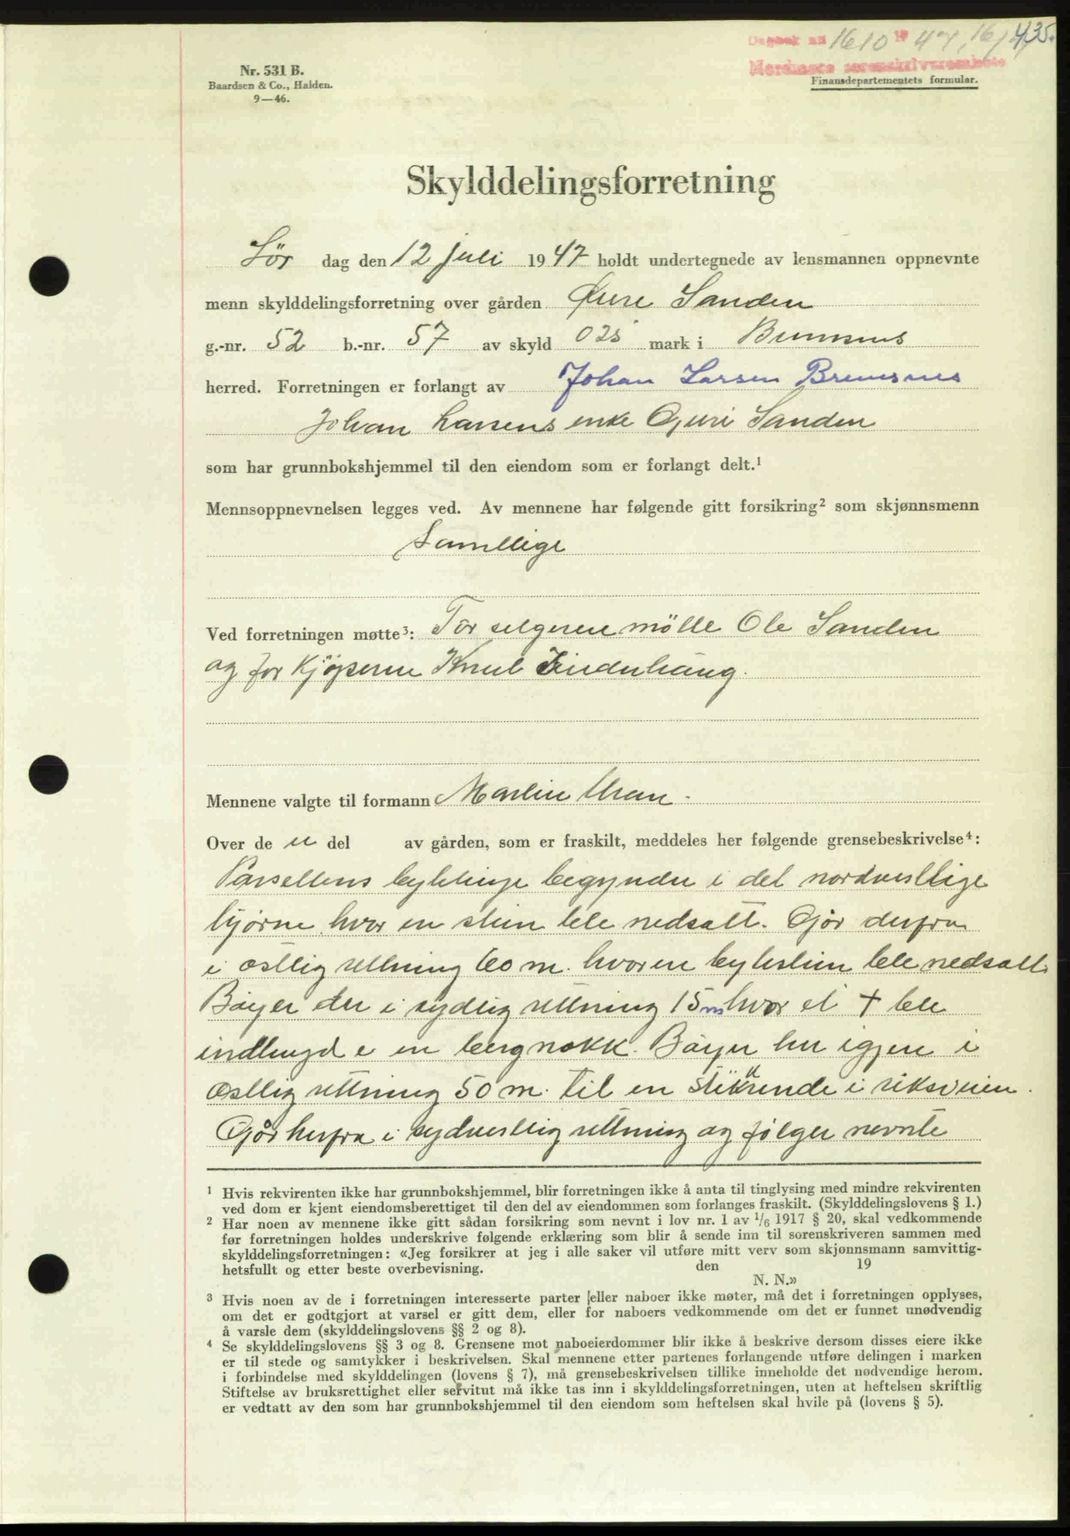 Dagbok nr. 1610 19 47, 16/
435.
Nordmøre sorenskriverembete
Nr. 531 B.
Baardsen & Co., Halden.
9—46.
Finansdepartementets formular.
Skylddelingsforretning
Lør dag den 12 juli 1947 holdt undertegnede av lensmannen oppnevnte
menn skylddelingsforretning over gården Øvre Sanden
g.-nr. 52 b.-nr. 57 av skyld 025 mark i Bremsnes
herred. Forretningen er forlangt av Johan Larsen Bremsnes
Johan Larsens enke Guri Sanden
som har grunnbokshjemmel til den eiendom som er forlangt delt.¹
Mennsoppnevnelsen legges ved. Av mennene har følgende gitt forsikring² som skjønnsmenn
Samtlige
Ved forretningen møtte³: For selgeren møtte Ole Sanden
og for Kjøperen Knut
Mennene valgte til formann Martin
Over de n del av gården, som er fraskilt, meddeles her følgende grensebeskrivelse⁴:
Parsellens bytelinje begynder i det nordvestlige
hjørne hvor en sten ble nedsatt. Går derfra
i østlig rettning 60 m. hvor en bytesten ble nedsatt.
Bøyer der i sydlig rettning 15 m hvor et + ble
indhugd i en bergnakk. Bøyer her igjen i
østlig rettning 50 m. til en stikrende i riksveien.
Går herfra i sydvestlig rettning og følger nevnte
¹ Hvis rekvirenten ikke har grunnbokshjemmel, blir forretningen ikke å anta til tinglysing med mindre rekvirenten
ved dom er kjent eiendomsberettiget til den del av eiendommen som forlanges fraskilt. (Skylddelingslovens § 1.)
² Har noen av mennene ikke gitt sådan forsikring som nevnt i lov nr. 1 av 1/6 1917 § 20, skal vedkommende
før forretningen holdes underskrive følgende erklæring som blir å sende inn til sorenskriveren sammen med
skylddelingsforretningen: «Jeg forsikrer at jeg i alle saker vil utføre mitt verv som skjønnsmann samvittig-
hetsfullt og etter beste overbevisning. den 19
N. N.»
³ Hvis noen av de i forretningen interesserte parter eller naboer ikke møter, må det i forretningen opplyses,
om det er godtgjort at varsel er gitt dem, eller for naboers vedkommende om det er funnet unødvendig
å varsle dem (skylddelingslovens §§ 2 og 8).
⁴ Se skylddelingslovens §§ 3 og 8. Grensene mot naboeierdommer blir ikke å beskrive dersom disses eiere ikke
er til stede og samtykker i beskrivelsen. Skal mennene etter partenes forlangende utføre delingen i marken
i forbindelse med skylddelingen (lovens § 7), må grensebeskrivelsen tillike inneholde det nødvendige herom.
Stiftelse av bruksrettighet eller servitut må ikke tas inn i skylddelingsforretningen, uten at heftelsen skriftlig
er vedtatt av den som har grunnbokshjemmel til den eiendom som heftelsen skal hvile på (lovens § 5).